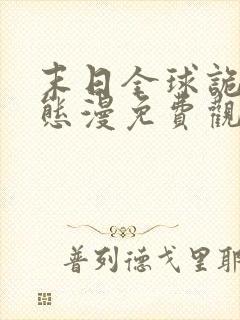 末日全球詭
態漫免費觀
普列德戈里耶